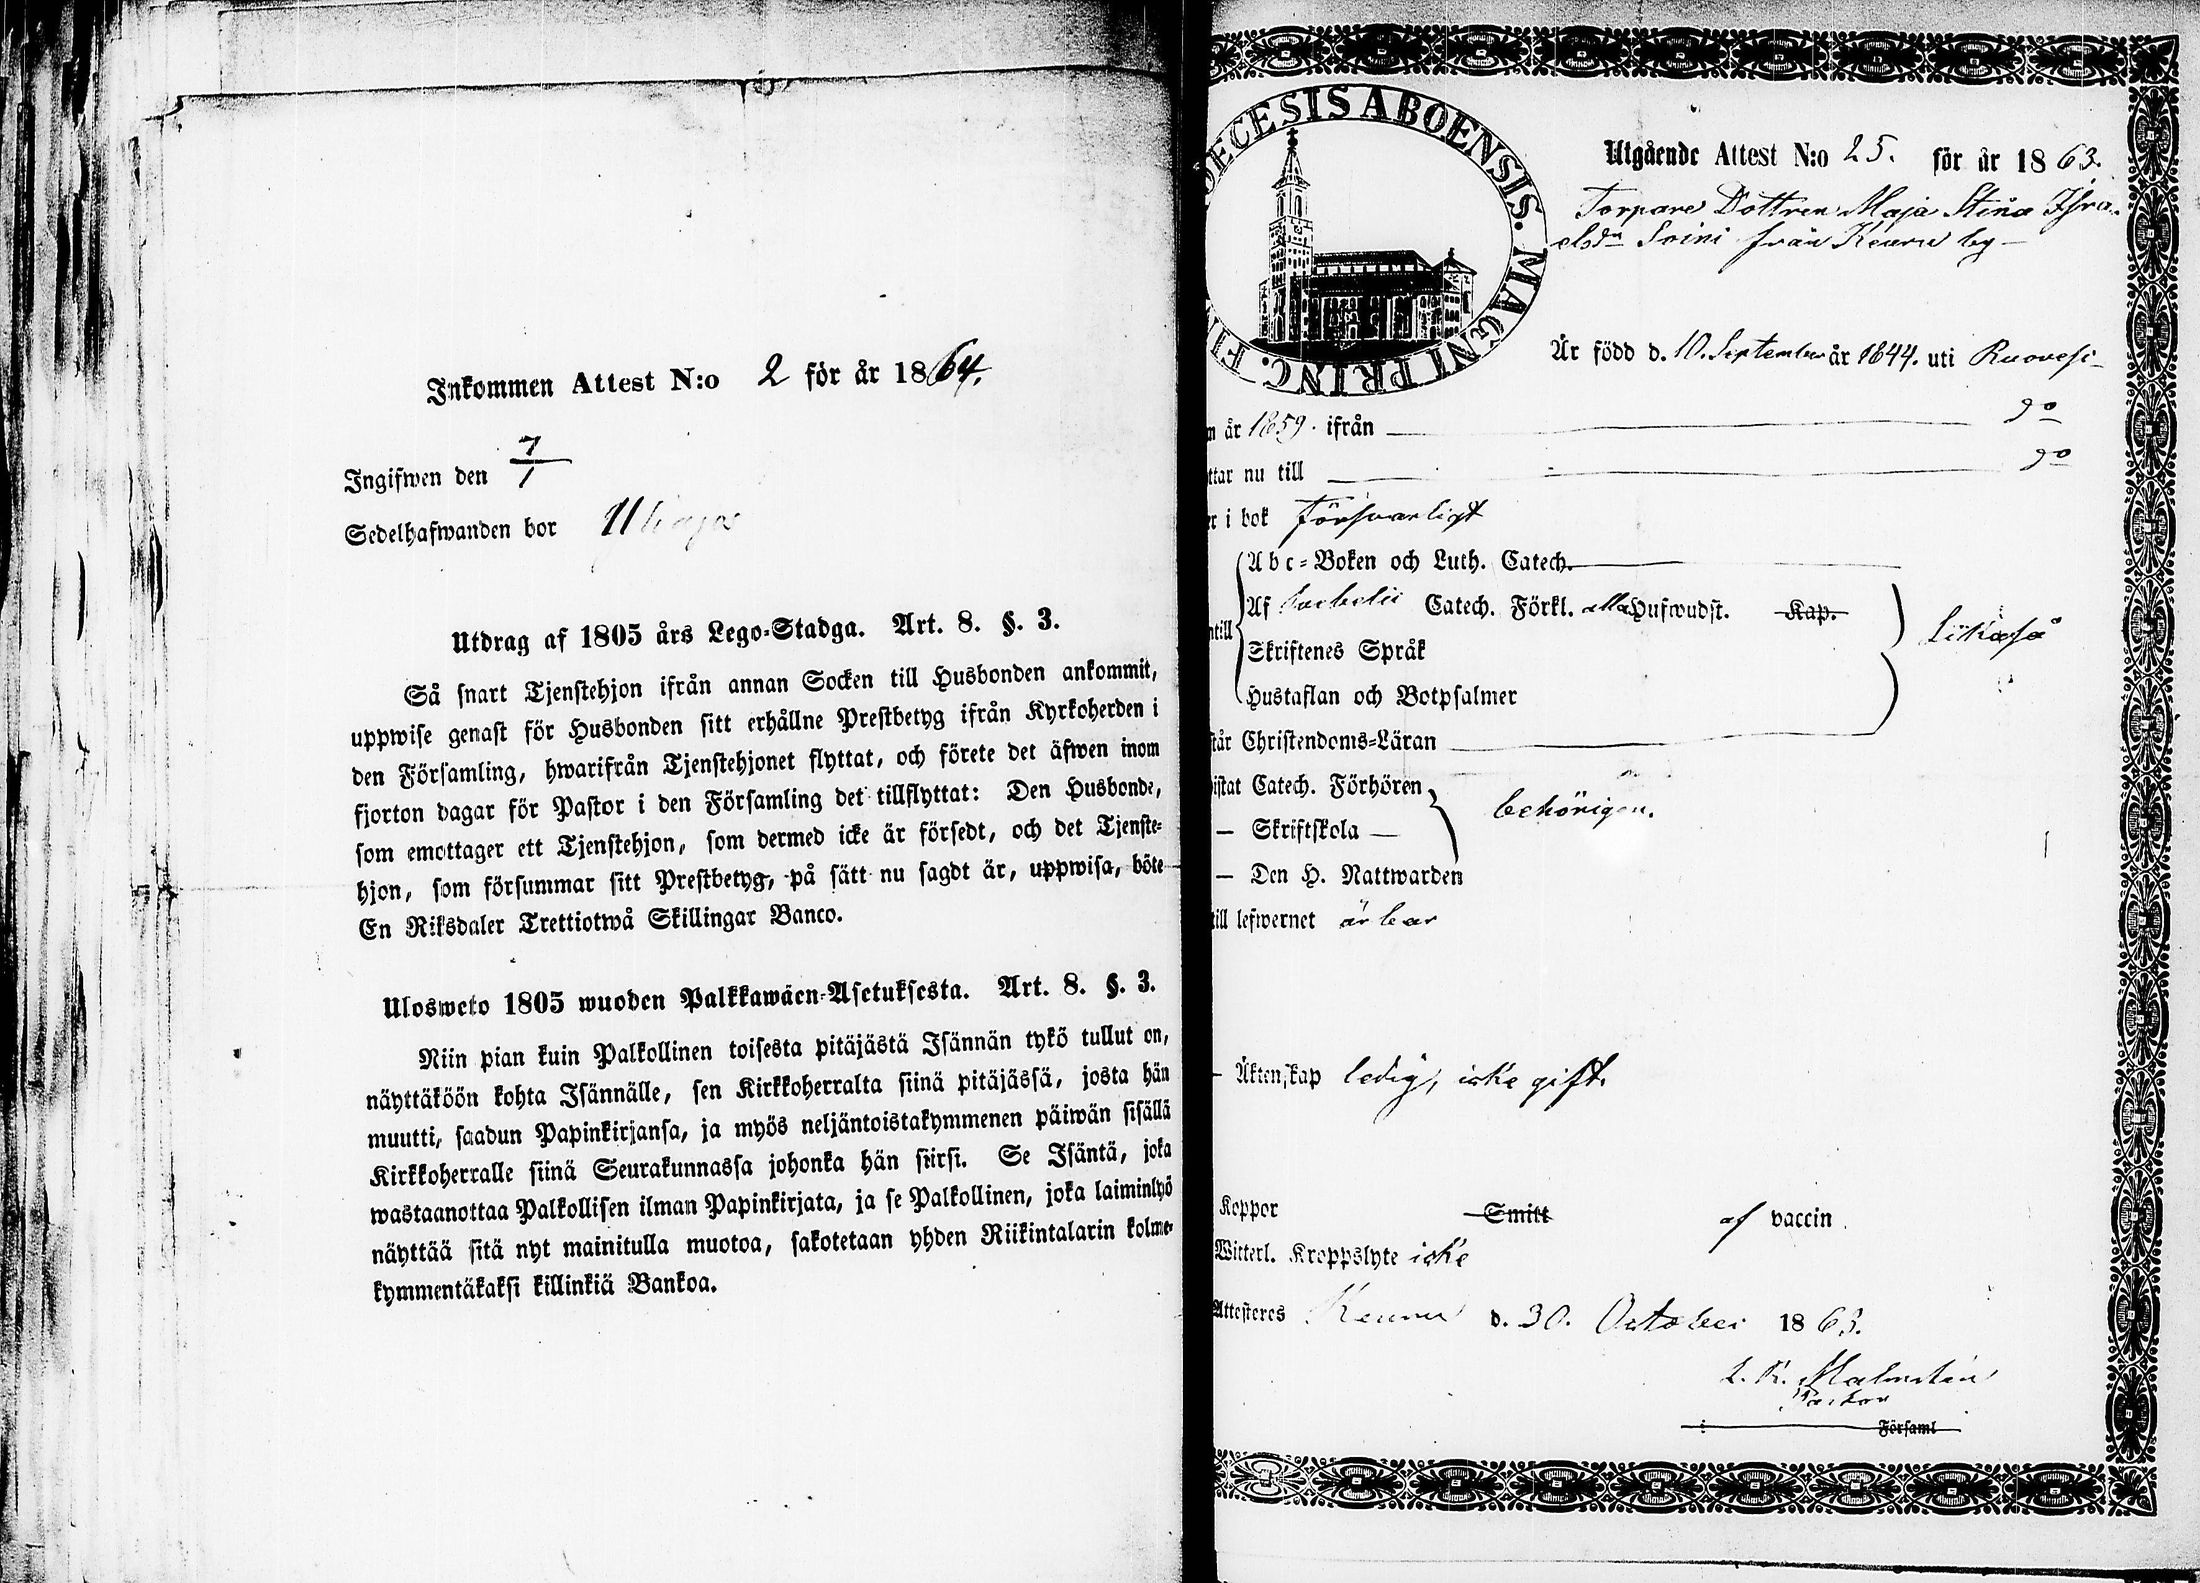 Inkommen Attest N:o 2 för år 1864.
Ingifwen den 7/1
Sedelhafwanden bor
Utdrag af 1805 års Lego-Stadga. Art. 8. §. 3.
Så snart Tjenstehjon ifrån annan Socken till Husbonden ankommit,
uppwise genast för Husbonden sitt erhållne Prestbetyg ifrån Kyrkoherden i
den Församling, hwarifrån Tjenstehjonet flyttat, och förete det äfwen inom
fjorton dagar för Pastor i den Församling det tillflyttat: Den Husbonde,
som emottager ett Tjenstehjon, som dermed icke är försedt, och det Tjenste-
hjon, som försummar sitt Prestbetyg, på sätt nu sagdt är, uppwisa, böte
En Riksdaler Trettiotwå Skillingar Banco.
Ulosweto 1805 wuoden Palkkawäen-Asetuksesta. Art. 8. §. 3.
Niin pian kuin Palkollinen toisesta pitäjästä Isännän tykö tullut on,
näyttäköön kohta Isännälle, sen Kirkkoherralta siinä pitäjässä, josta hän
muutti, saadun Papinkirjansa, ja myös neljäntoistakymmenen päiwän sisällä
Kirkkoherralle siinä Seurakunnassa johonka hän siirsi. Se Isäntä, joka
wastaanottaa Palkollisen ilman Papinkirjata, ja se Palkollinen, joka laiminlyö
näyttää sitä nyt mainitulla muotoa, sakotetaan yhden Riikintalarin kolme-
kymmentäkaksi killinkiä Bankoa.
DIOECESIS ABOENSIS. MAGNI PRINC. FI
Utgående Attest N:o 25. för år 1863.
Torpare Dottren Maja Stina Isra-
elsdr Soini från Keuru by
Är född d. 10. September år 1844. uti Ruovesi
n år 1859. ifrån do
ttar nu till do
er i bok försvarligt
Abc-Boken och Luth. Catech.
Af Catech. Förkl. alla Hufwudst. Kap.
ntill
Skriftenes Språk
Hustaflan och Botpsalmer
likaså
står Christendoms-Läran
istat Catech. Förhören
— Skriftskola —
behörigen.
— Den H. Nattwarden
till lefwernet ärbar
— Äktenskap ledig, icke gift.
Koppor Smitt af vaccin
Witterl. Kroppslyte icke
Attesteres Keuru d. 30. October 1863.
Malmstén
Pastor
i Församl